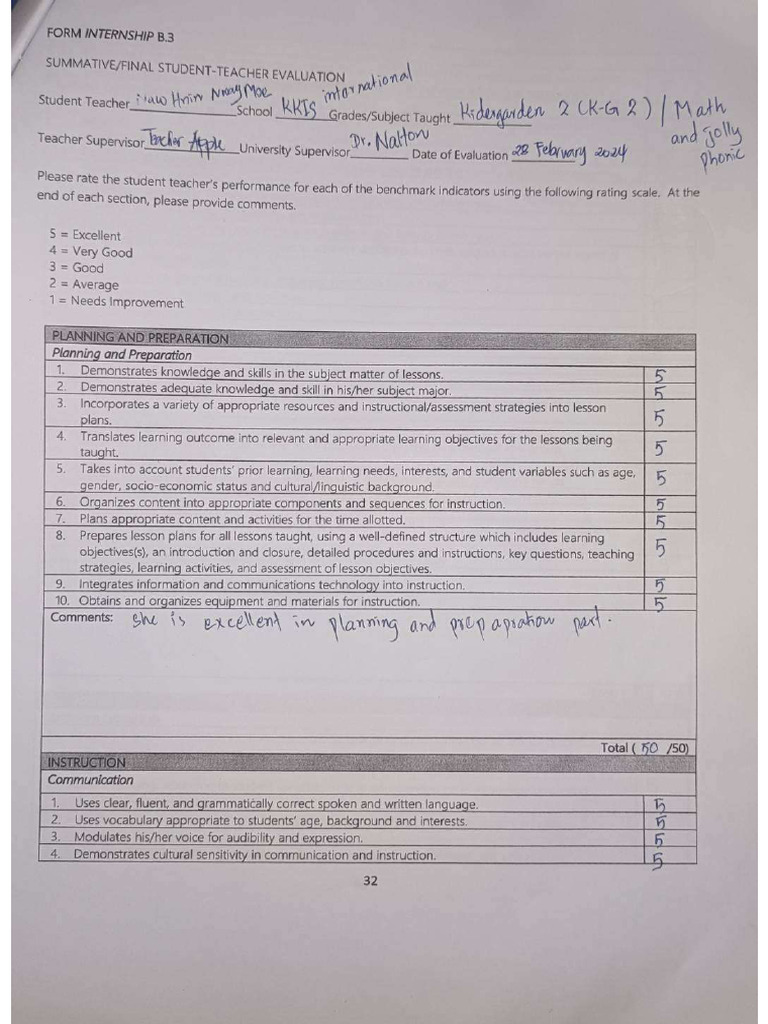 FORM INTERNSHIP B.3
SUMMATIVE/FINAL STUDENT-TEACHER EVALUATION
Student Teacher Hnin Moe School KKIS international Grades/Subject Taught Kidergarden 2 (K-G 2) / Math and jolly phonic
Teacher Supervisor Teacher Apple University Supervisor Dr. Date of Evaluation 28 February 2024
Please rate the student teacher's performance for each of the benchmark indicators using the following rating scale. At the
end of each section, please provide comments.
5 = Excellent
4 = Very Good
3 = Good
2 = Average
1 = Needs Improvement
PLANNING AND PREPARATION
Planning and Preparation
1. Demonstrates knowledge and skills in the subject matter of lessons. 5
2. Demonstrates adequate knowledge and skill in his/her subject major. 5
3. Incorporates a variety of appropriate resources and instructional/assessment strategies into lesson
plans. 5
4. Translates learning outcome into relevant and appropriate learning objectives for the lessons being
taught. 5
5. Takes into account students' prior learning, learning needs, interests, and student variables such as age,
gender, socio-economic status and cultural/linguistic background. 5
6. Organizes content into appropriate components and sequences for instruction. 5
7. Plans appropriate content and activities for the time allotted. 5
8. Prepares lesson plans for all lessons taught, using a well-defined structure which includes learning
objectives(s), an introduction and closure, detailed procedures and instructions, key questions, teaching 5
strategies, learning activities, and assessment of lesson objectives.
9. Integrates information and communications technology into instruction. 5
10. Obtains and organizes equipment and materials for instruction. 5
Comments: She is excellent in planning and prepapration part.
Total ( 50 /50)
INSTRUCTION
Communication
1. Uses clear, fluent, and grammatically correct spoken and written language. 5
2. Uses vocabulary appropriate to students' age, background and interests. 5
3. Modulates his/her voice for audibility and expression. 5
4. Demonstrates cultural sensitivity in communication and instruction. 5
32